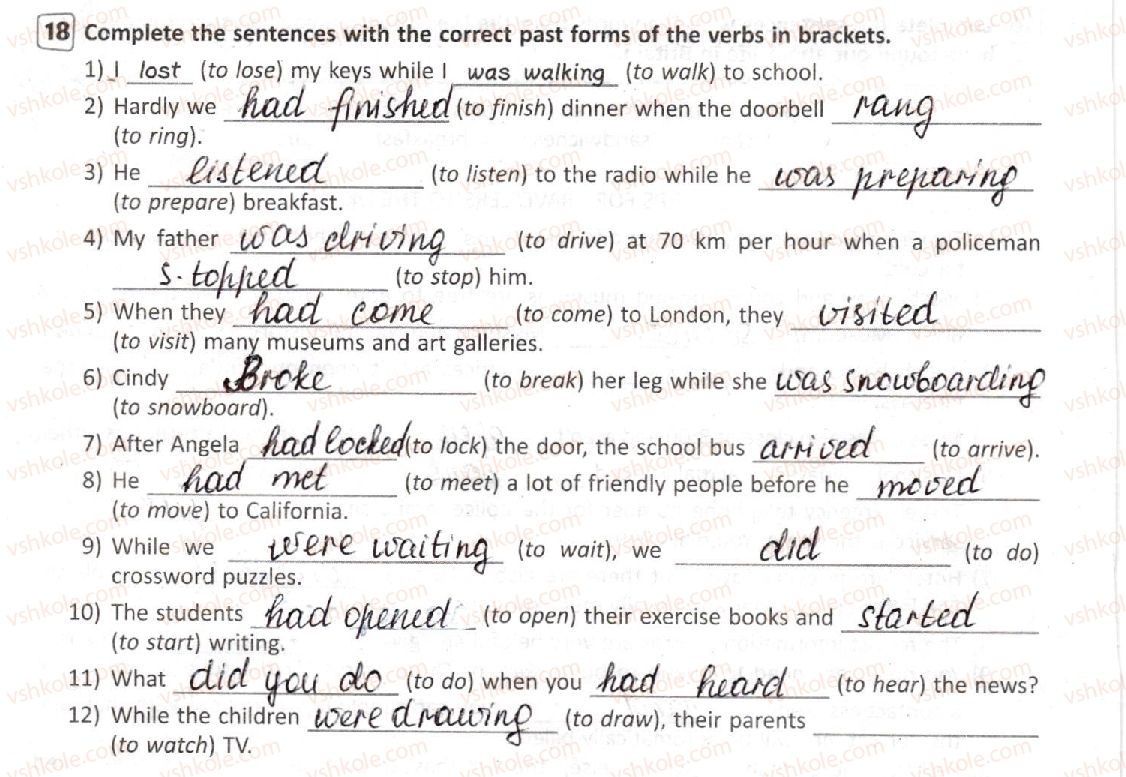 18 Complete the sentences with the correct past forms of the verbs in brackets.
1) I lost (to lose) my keys while I was walking (to walk) to school.
2) Hardly we had finished (to finish) dinner when the doorbell rang
(to ring).
3) He listened (to listen) to the radio while he was preparing
(to prepare) breakfast.
4) My father was driving (to drive) at 70 km per hour when a policeman
stopped (to stop) him.
5) When they had come (to come) to London, they visited
(to visit) many museums and art galleries.
6) Cindy Broke (to break) her leg while she was snowboarding
(to snowboard).
7) After Angela had locked (to lock) the door, the school bus arrived (to arrive).
8) He had met (to meet) a lot of friendly people before he moved
(to move) to California.
9) While we were waiting (to wait), we did (to do)
crossword puzzles.
10) The students had opened (to open) their exercise books and started
(to start) writing.
11) What did you do (to do) when you had heard (to hear) the news?
12) While the children were drawing (to draw), their parents
(to watch) TV.
vshkole.com